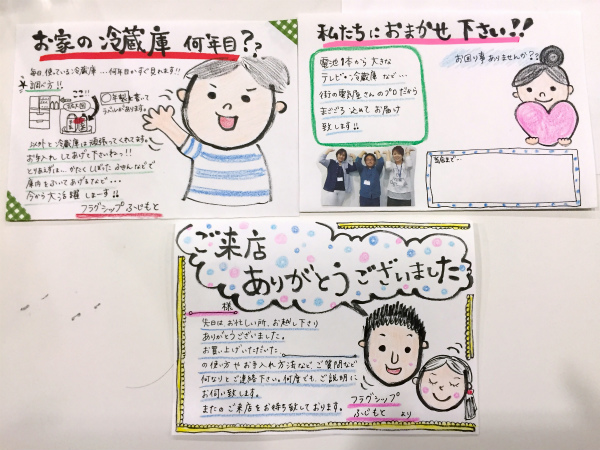 お家の冷蔵庫 何年目??
毎日使っている冷蔵庫…何年目かすぐ見れます!!
★調べ方!!
ココ!!
○年製と書いて
ラベルがあります。
以外と冷蔵庫は頑張ってくれてます。
お手入れしてあげて下さいねっ!!
とりあえずは…かたくしぼったふきんなどで
庫内をふいてあげるなど…
今から大活躍しまーす!!
フラグシップふじもと
私たちにおまかせ下さい!!
電池1本から大きな
テレビや冷蔵庫など…
街の電気屋さんのプロだから
まごころ込めてお届け
致します!!
お困り事ありませんか??
ご来店
ありがとうございました
様
先日はお忙しい所、お越し下さり
ありがとうございました。
お買い上げいただいた
の使い方やお手入れ方法など、ご質問など
何なりとご連絡下さい。何度でも、ご説明に
お伺い致します。
またのご来店をお待ち致しております。
フラグシップ
ふじもと より